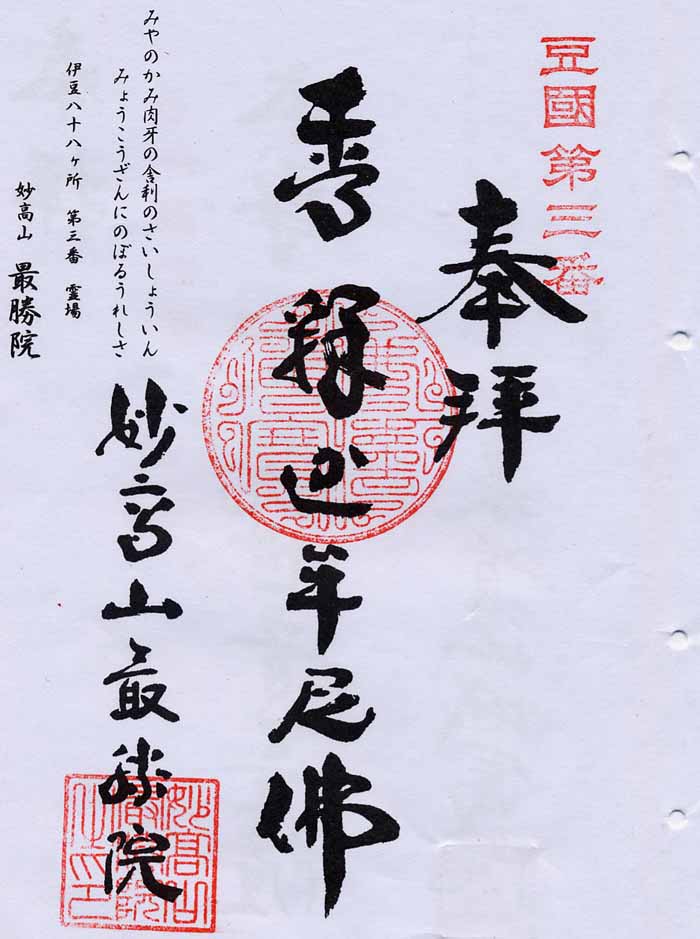 豆國第三番
奉拝
釋迦牟尼佛
みやのかみ肉牙の舎利のさいしょういん
みょうこうざんにのぼるうれしさ
伊豆八十八ヶ所 第三番 霊場
妙高山 最勝院
妙高山最勝院
妙高山
最勝院
之印